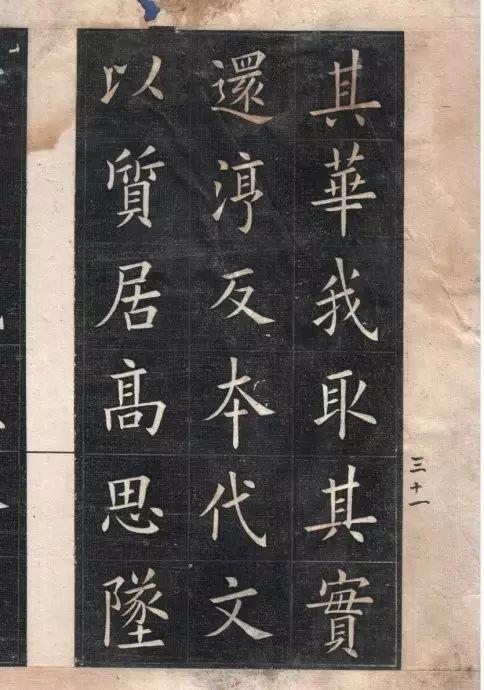 其華我取其實
還淳反本代文
以質居髙思墜
三十一